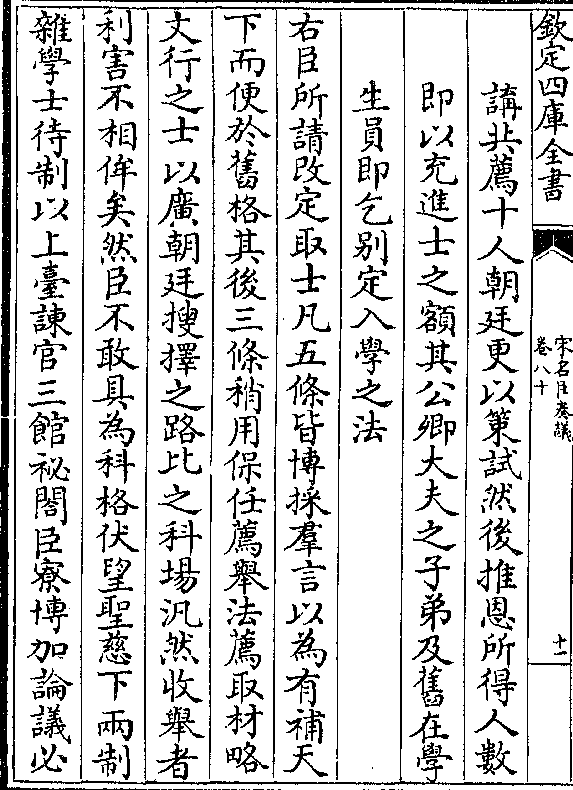 欽定四庫全書
宋名臣奏議
卷八十
十一
講共薦十人朝廷更以策試然後推恩所得人數
即以充進士之額其公卿大夫之子弟及舊在學
生員即乞别定入學之法
右臣所請改定取士凡五條皆博採羣言以為有補天
下而便於舊格其後三條稍用保任薦舉法薦取材略
文行之士以廣朝廷搜擇之路比之科場汎然收舉者
利害不相侔矣然臣不敢具為科格伏望聖慈下兩制
雜學士待制以上臺諫官三館祕閣臣寮博加論議必